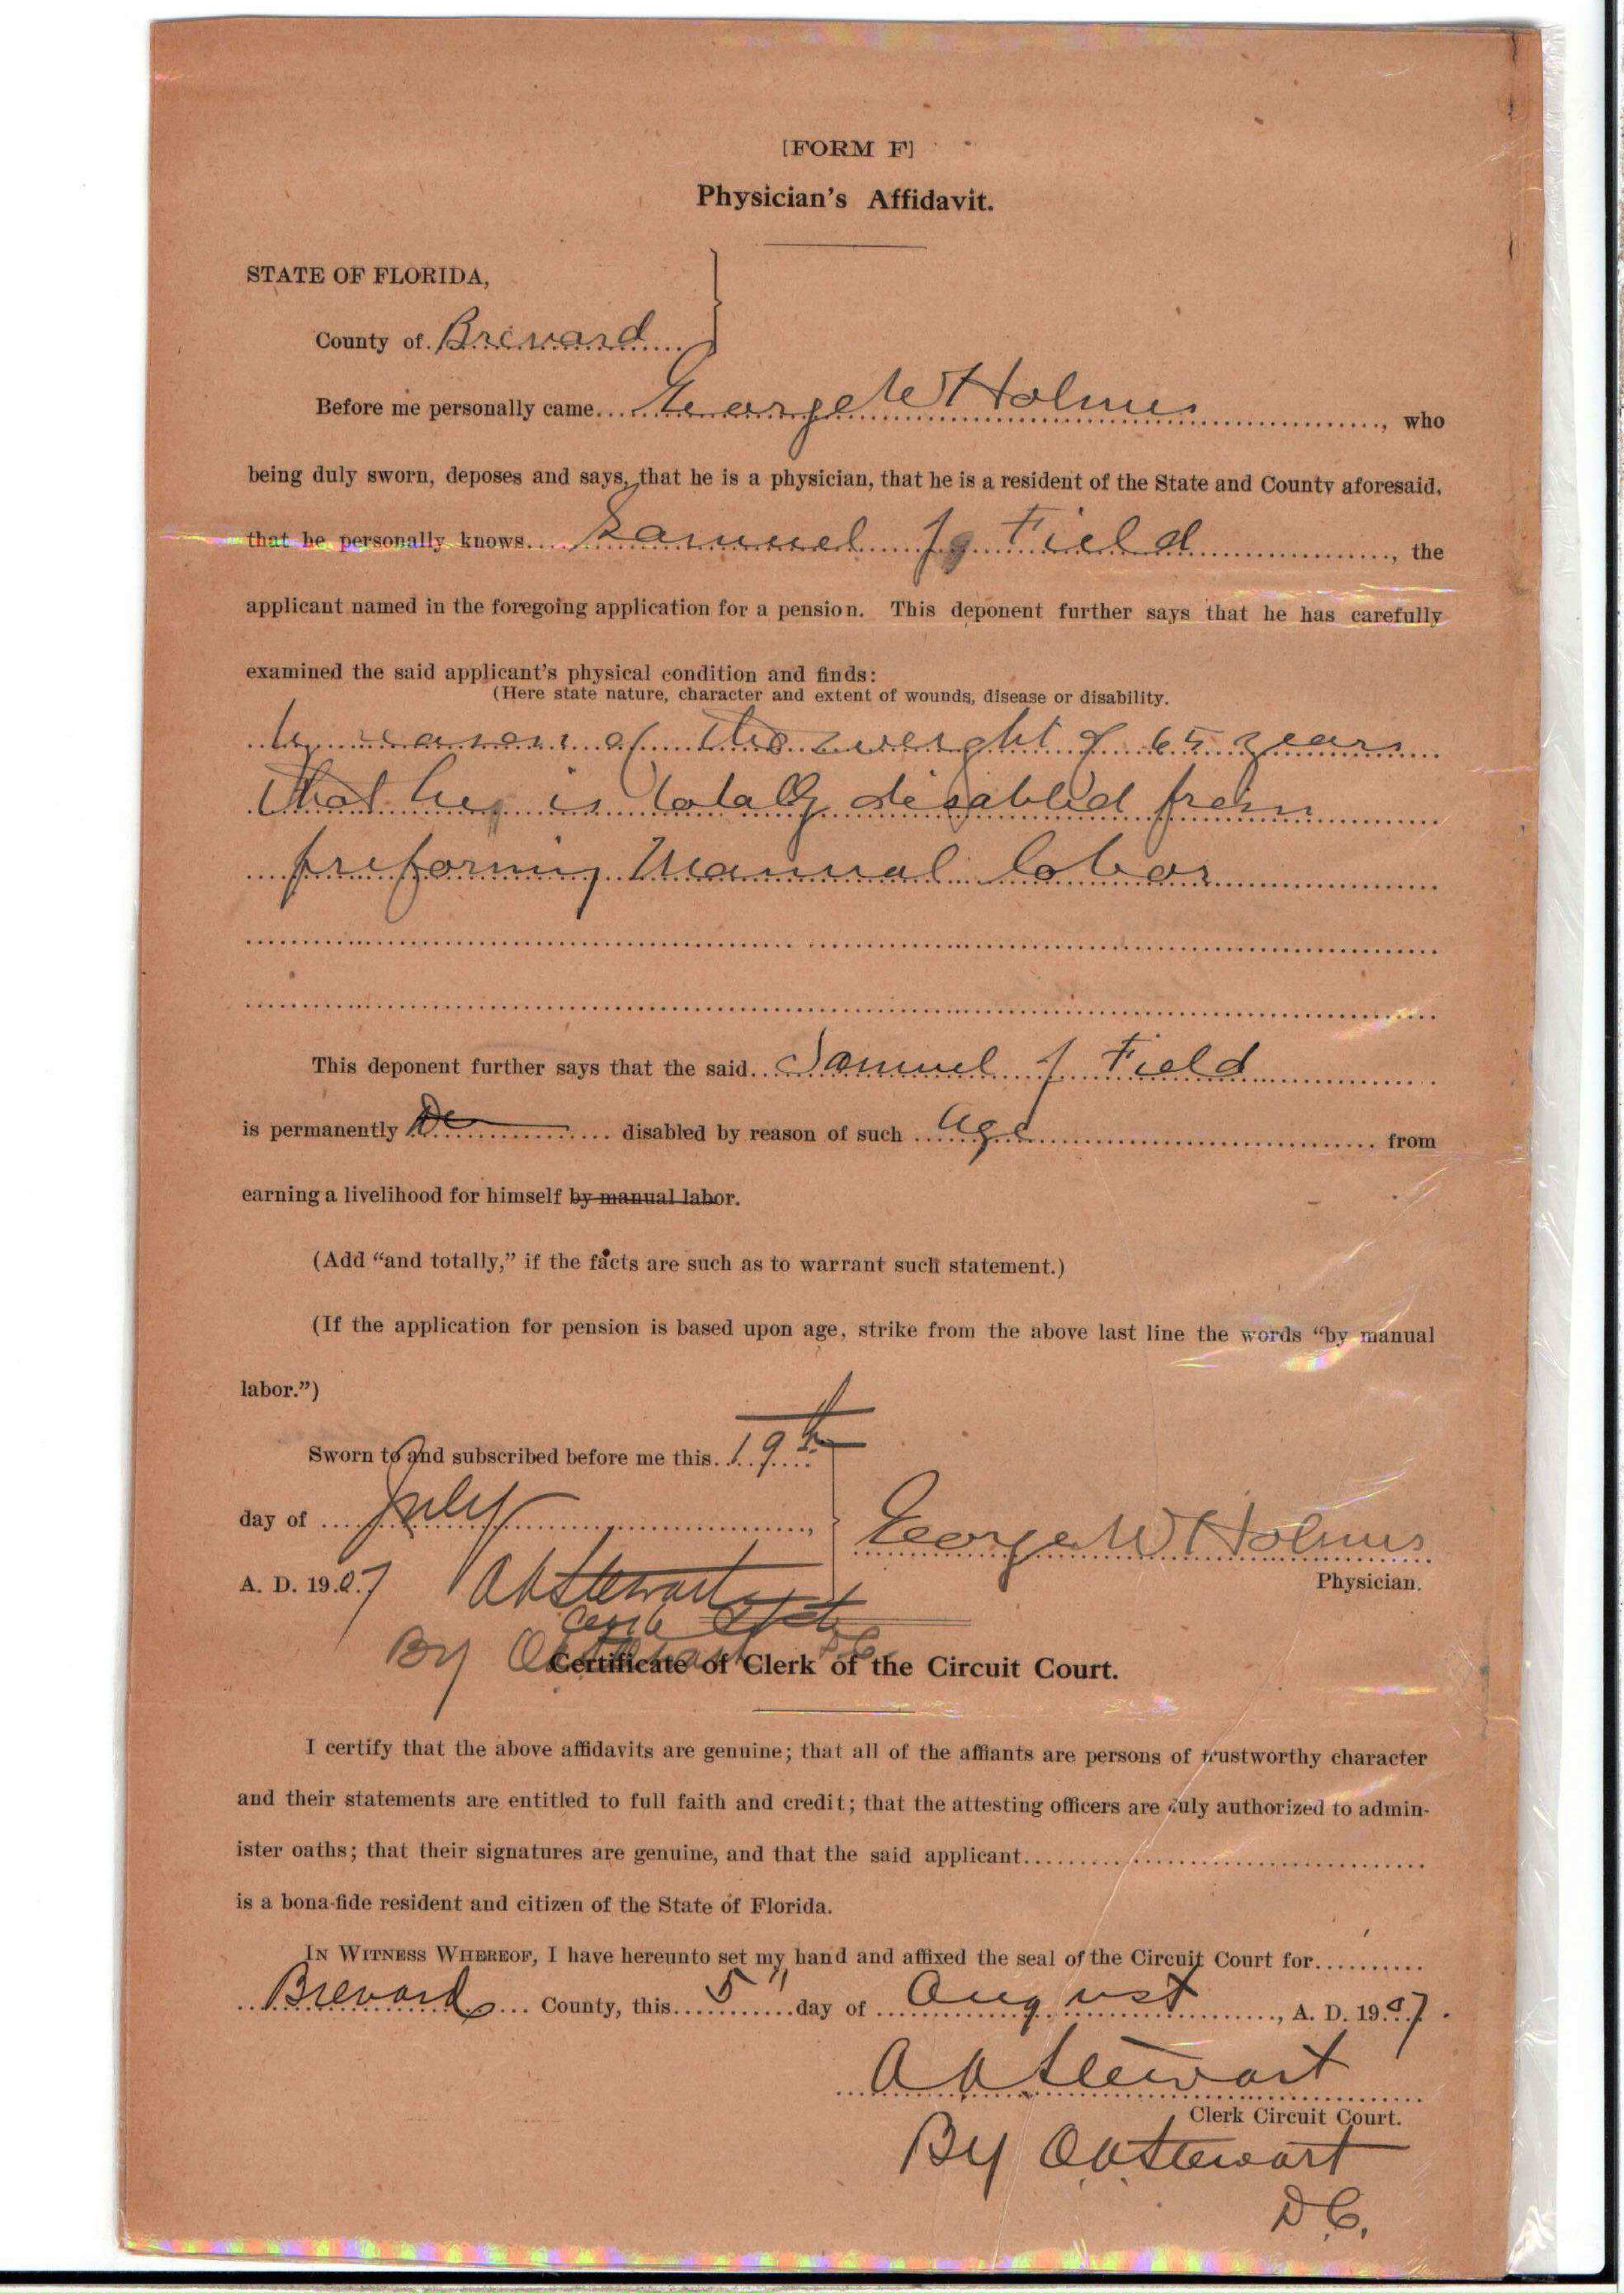 [FORM F]
Physician's Affidavit.
STATE OF FLORIDA,
County of Brevard
Before me personally came George W Holmes, who
being duly sworn, deposes and says, that he is a physician, that he is a resident of the State and County aforesaid,
that he personally knows Samuel J Field, the
applicant named in the foregoing application for a pension. This deponent further says that he has carefully
examined the said applicant's physical condition and finds:
(Here state nature, character and extent of wounds, disease or disability.
by reason of the weight of 65 years
that he is totally disabled from
preforming Manual labor
This deponent further says that the said Samuel J Field
is permanently disabled by reason of such age from
earning a livelihood for himself by manual labor.
(Add "and totally," if the facts are such as to warrant such statement.)
(If the application for pension is based upon age, strike from the above last line the words "by manual
labor.")
Sworn to and subscribed before me this 19th
day of July,
George W Holmes
Physician.
A. D. 1907 A A Stewart
By Stewart DC
Certificate of Clerk of the Circuit Court.
I certify that the above affidavits are genuine; that all of the affiants are persons of trustworthy character
and their statements are entitled to full faith and credit; that the attesting officers are duly authorized to admin-
ister oaths; that their signatures are genuine, and that the said applicant
is a bona-fide resident and citizen of the State of Florida.
IN WITNESS WHEREOF, I have hereunto set my hand and affixed the seal of the Circuit Court for
Brevard County, this 5" day of August, A. D. 1907.
A A Stewart
Clerk Circuit Court.
By Stewart
D C.